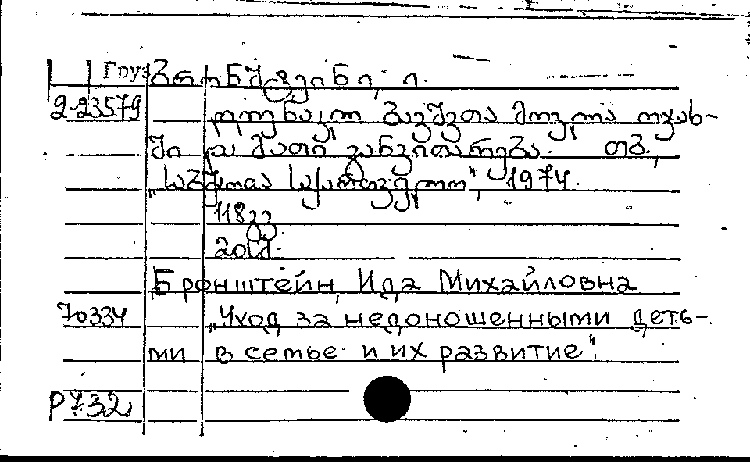 Груз ბრონშტეინი, ი.
2-23579 დღენაკლ ბავშვთა მოვლა ოჯახ-
ში და მათი განვითარება. თბ.,
„საბჭოთა საქართველო", 1974.
118 გვ.
20 კ.
Бронштейн, Ида Михайловна
70334 „Уход за недоношенными деть-
ми в семье и их развитие".
Р732